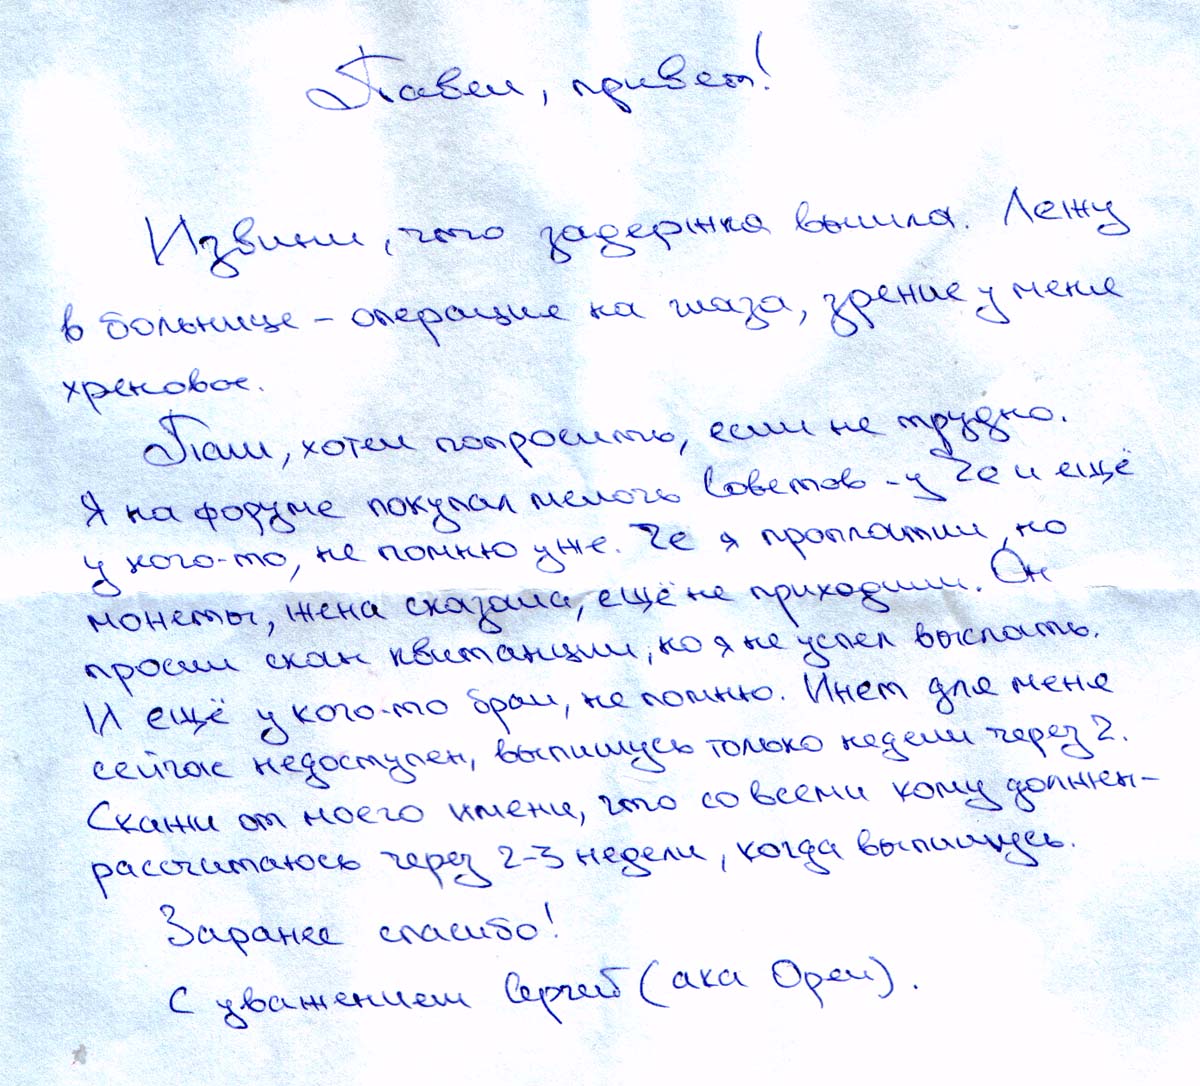 Павел, привет!
Извини, что задержка вышла. Лежу
в больнице - операция на глаза, зрение у меня
хреновое.
Паш, хотел попросить, если не трудно.
Я на форуме покупал мелочь Советов - у Че и ещё
у кого-то, не помню уже. Че я проплатил, но
монеты, жена сказала, ещё не приходили. Он
просил скан квитанции, но я не успел выслать.
И ещё у кого-то брал, не помню. Инет для меня
сейчас недоступен, выпишусь только недели через 2.
Скажи от моего имени, что со всеми кому должен -
рассчитаюсь через 2-3 недели, когда выпишусь.
Заранее спасибо!
С уважением Сергей (ака Орел).